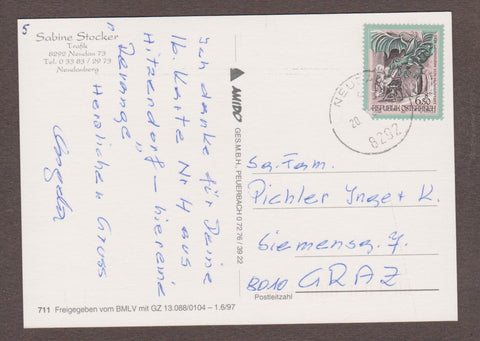 5
Sabine Stocker
Trafik
8292 Neudau 73
Tel. 0 33 83 / 29 73
Neudauberg
Ich danke für Deine
lb. Karte Nr 4 aus
Hitzendorf – hier eine
"Revange"
Herzlichen Gruss
AMIDO
GES.M.B.H. PEUERBACH 0 72 76 / 39 22
REPUBLIK ÖSTERREICH
20
8292
Sg. Fam.
Pichler Inge + K.
Siemensg. 7
8010 GRAZ
Postleitzahl
711 Freigegeben vom BMLV mit GZ 13.088/0104 – 1.6/97